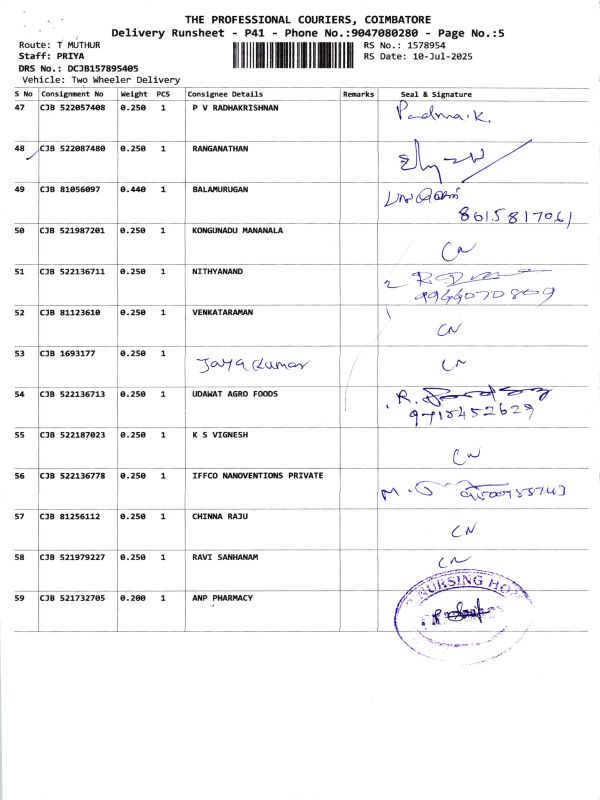 THE PROFESSIONAL COURIERS, COIMBATORE
Delivery Runsheet - P41 - Phone No.:9047080280 - Page No.:5
Route: T MUTHUR RS No.: 1578954
Staff: PRIYA RS Date: 10-Jul-2025
DRS No.: DCJB157895405
Vehicle: Two Wheeler Delivery
S No Consignment No Weight PCS Consignee Details Remarks Seal & Signature
47 CJB 522057408 0.250 1 P V RADHAKRISHNAN Padma.K.
48 CJB 522087480 0.250 1 RANGANATHAN
49 CJB 81056097 0.440 1 BALAMURUGAN
8615817061
50 CJB 521987201 0.250 1 KONGUNADU MANANALA CN
51 CJB 522136711 0.250 1 NITHYANAND
9944070809
52 CJB 81123610 0.250 1 VENKATARAMAN CN
53 CJB 1693177 0.250 1 Jaya Kumar CN
54 CJB 522136713 0.250 1 UDAWAT AGRO FOODS R.
9718452629
55 CJB 522187023 0.250 1 K S VIGNESH CN
56 CJB 522136778 0.250 1 IFFCO NANOVENTIONS PRIVATE M.
57 CJB 81256112 0.250 1 CHINNA RAJU CN
58 CJB 521979227 0.250 1 RAVI SANHANAM CN
59 CJB 521732705 0.200 1 ANP PHARMACY NURSING HO